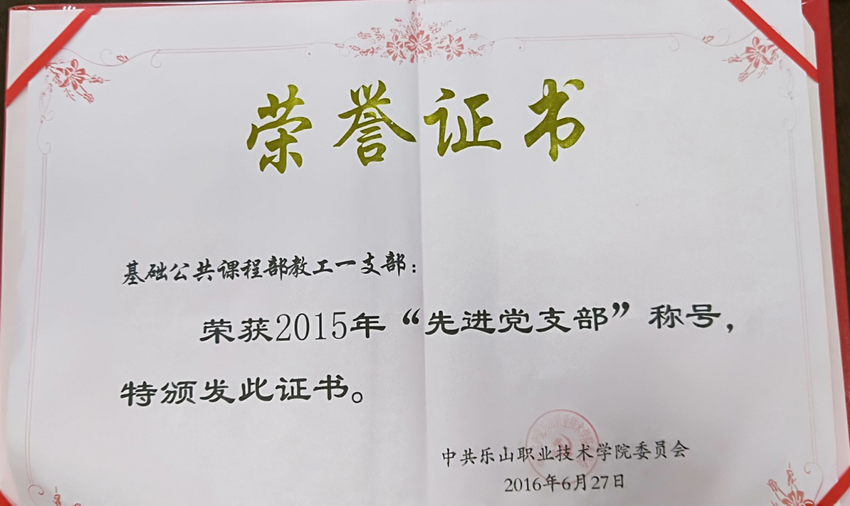 荣誉证书
基础公共课程部教工一支部：
荣获2015年“先进党支部”称号，
特颁发此证书。
中共乐山职业技术学院委员会
2016年6月27日